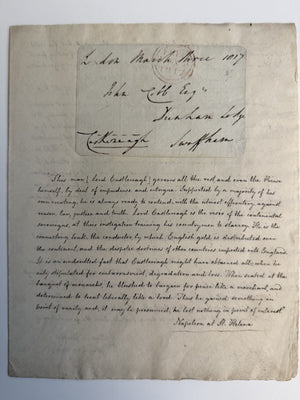 London March three 1817
John Cobb Esqr
Dunham Lodge
Castlereagh Swaffham
This man [Lord Castlereagh] governs all the rest and even the Prince
himself, by dint of impudence and intrigue. Supported by a majority of his
own creating, he is always ready to contend, with the utmost effrontery, against
reason, law, justice and truth. Lord Castlereagh is the of the continental
sovereigns, at their instigation training his countrymen to slavery. He is the
connecting link, the conductor by which English gold is distributed over
the continent, and the despotic doctrines of other countries imported into England.
It is an undoubted fact that Castlereagh might have obtained all; when he
only stipulated for embarrassment, degradation and loss. When seated at the
banquet of monarchs, he blushed to bargain for peace like a merchant, and
determined to treat liberally like a Lord. Thus he gained something in
point of vanity and, it may be presumed, he lost nothing in point of interest"
Napoleon at St. Helena